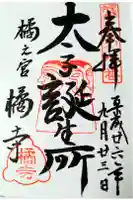 奉拝
平成廿六年
九月廿三日
太子誕生所
橘之宮
橘寺